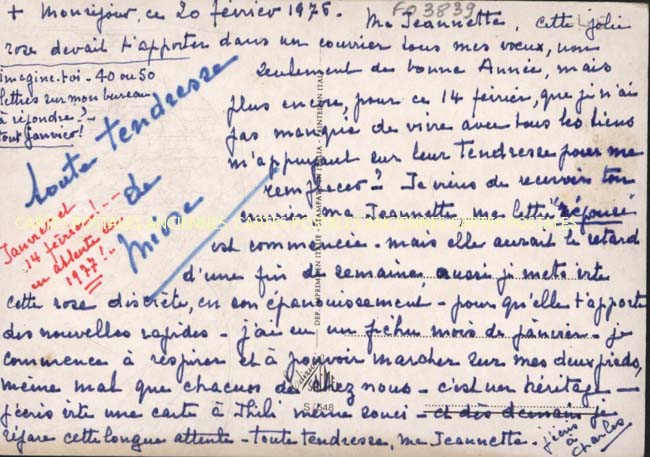 + Monréjour, ce 20 février 1976. FP 3839
Ma Jeannette, cette jolie
rose devait t'apporter dans un courrier tous mes vœux, non
seulement de bonne Année, mais
plus encore, pour ce 14 février, que je n'ai
pas manqué de vivre avec tous les tiens
m'appuyant sur leur Tendresse pour me
remplacer? Je viens de recevoir ton
ma Jeannette, ma lettre "réponse"
est commencée - mais elle aurait le retard
d'une fin de semaine, aussi je mets vite
cette rose discrète, en son épanouissement - pour qu'elle t'apporte
des nouvelles rapides - j'ai eu un fichu mois de janvier - je
commence à respirer et à pouvoir marcher sur mes deux pieds,
même mal que chacuns de chez nous - c'est un héritage -
j'écris vite une carte à Thili même souci - et dès demain je
répare cette longue attente - Toute tendresse, ma Jeannette.
j'écris
à
Charles
imagine-toi - 40 ou 50
lettres sur mon bureau
à répondre? -
tout janvier!
toute tendresse
de
Janvier et
14 février! --
en attente de
1977! -
DEP. IMPRIMÉ EN ITALIE - STAMPATO IN ITALIA - PRINTED IN ITALY
S / 548